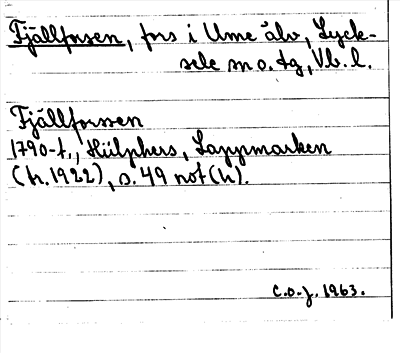 Fjällforsen, fors i Ume älv, Lyck-
sele sn o. tg, Vb. l.
Fjällforssen
1790-t., Hülphers, Lappmarken
(tr. 1922), s. 49 not (tr).
C.O.J. 1963.